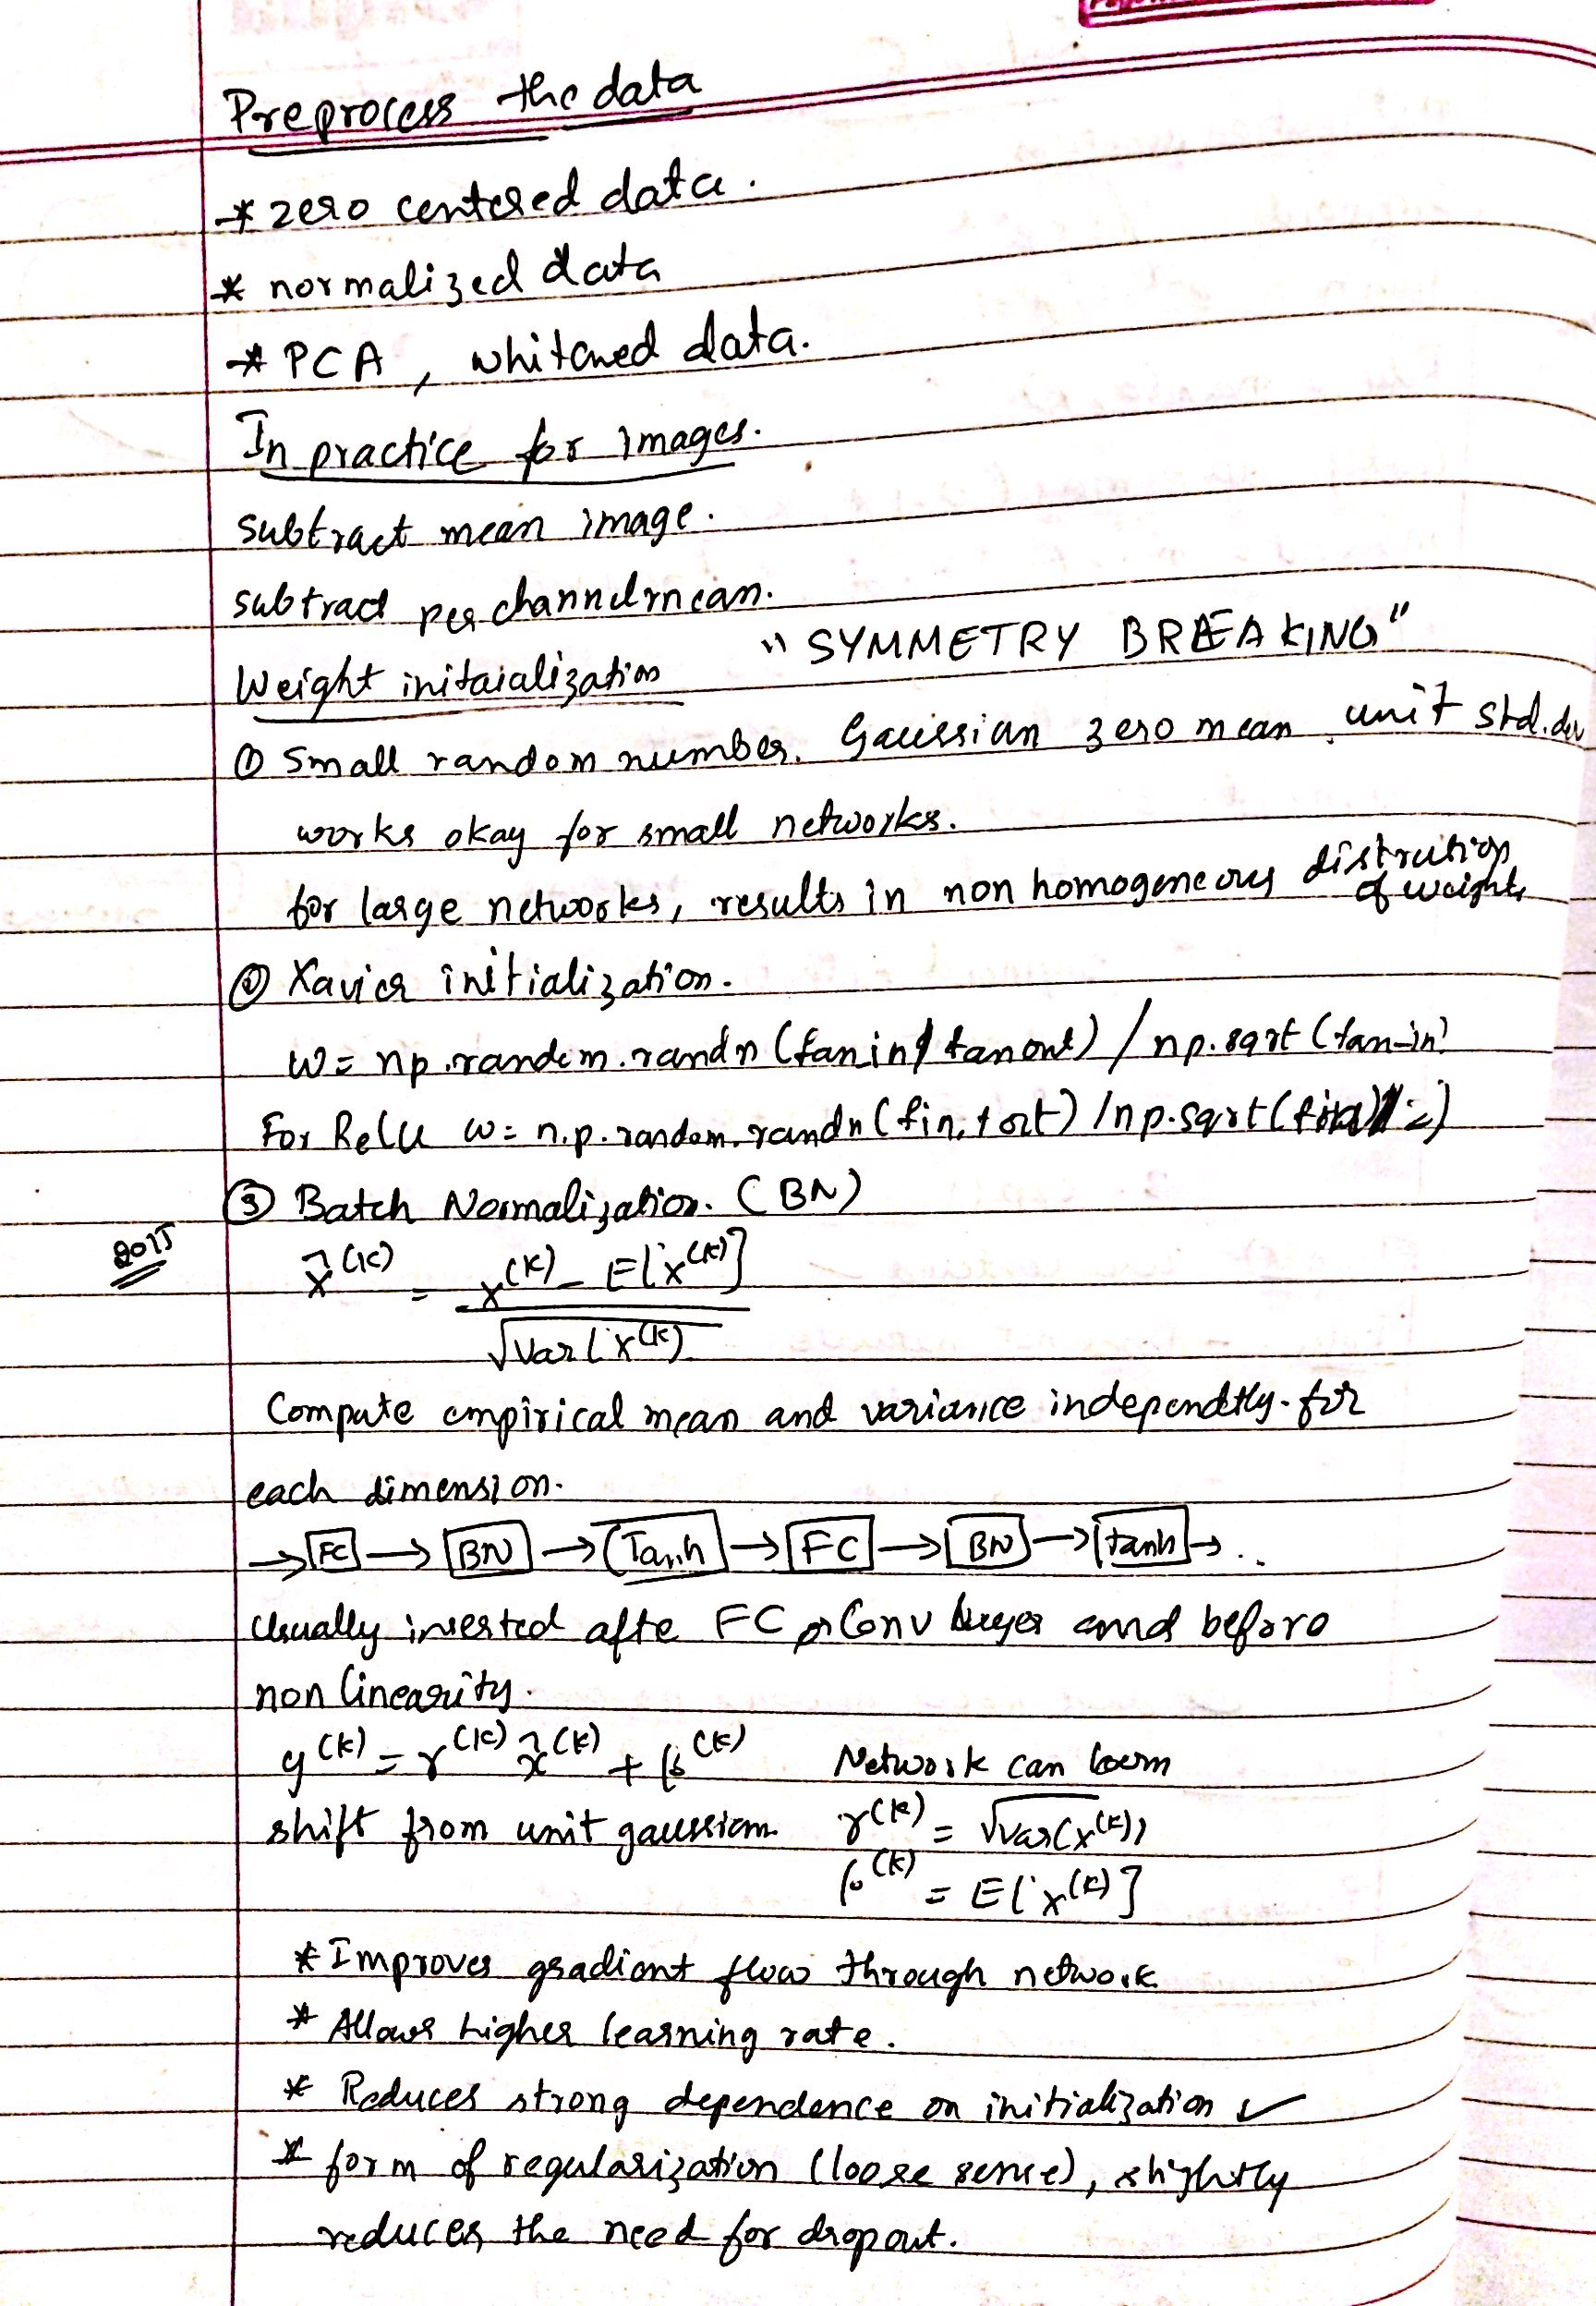 Preprocess the data
* zero centered data.
* normalized data
* PCA, whitened data.
In practice for images.
subtract mean image.
subtract per channel mean.
Weight initaialization "SYMMETRY BREAKING"
① Small random number. Gaussian zero mean, unit std.dev
works okay for small networks.
for large networks, results in non homogeneous distrution of weights
② Xavier initialization.
W = np.random.randn (fan in, fan out) / np.sqrt (fan-in)
For Relu W = n.p.random.randn (fin, fout) / np.sqrt (fin/2)
③ Batch Normalization. (BN)
2015
x̂^(k) = x^(k) - E[x^(k)] / √Var[x^(k)]
Compute empirical mean and variance independtly for
each dimension.
→ FC → BN → Tanh → FC → BN → tanh → ..
Usually inserted afte FC or Conv layer and before
non linearity.
y^(k) = γ^(k) x̂^(k) + β^(k) Network can learn
shift from unit gaussian γ^(k) = √Var(x^(k))
β^(k) = E[x^(k)]
* Improves gradient flow through network
* Allows higher learning rate.
* Reduces strong dependence on initialization ✓
* form of regularization (loose sense), slightly
reduces the need for dropout.